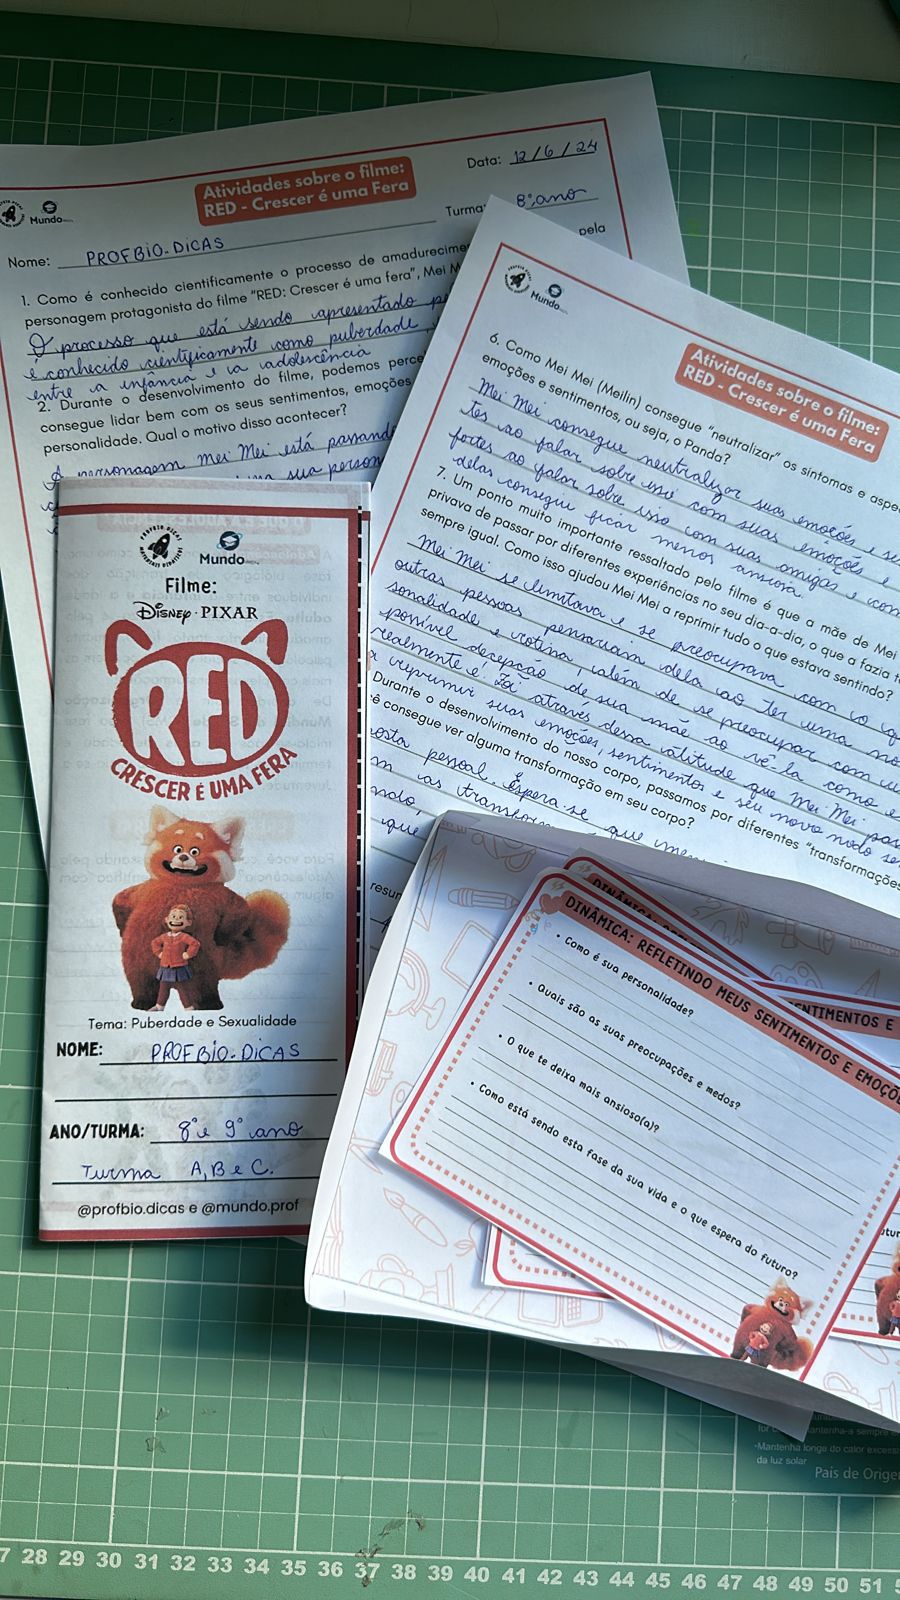 Atividades sobre o filme:
RED - Crescer é uma Fera
Data: 12/6/24
Mundo
Turma: 8º ano
Nome: PROFBIO.DICAS
1. Como é conhecido cientificamente o processo de amadurecimen
pela
personagem protagonista do filme "RED: Crescer é uma fera", Mei M
O processo que está sendo apresentado pe
é conhecido cientificamente como puberdade,
entre a infância e a adolescência
2. Durante o desenvolvimento do filme, podemos perce
consegue lidar bem com os seus sentimentos, emoções
personalidade. Qual o motivo disso acontecer?
A personagem Mei Mei está passand
sua person
Mundo
Atividades sobre o filme:
RED - Crescer é uma Fera
6. Como Mei Mei (Meilin) consegue "neutralizar" os sintomas e aspe
emoções e sentimentos, ou seja, o Panda?
Mei Mei consegue neutralizar suas emoções e se
tes ao falar sobre isso com suas emoções e
fortes ao falar sobre isso com suas amigas e com
delas consegue ficar menos ansiosa
7. Um ponto muito importante ressaltado pelo filme é que a mãe de Mei
privava de passar por diferentes experiências no seu dia-a-dia, o que a fazia t
sempre igual. Como isso ajudou Mei Mei a reprimir tudo o que estava sentindo?
Mei Mei se limitava e se preocupava com o q
outras pessoas pensariam dela ao ter uma no
sonalidade e rotina, além de se preocupar com u
possível decepção de sua mãe ao vê-la como e
realmente é. Foi através dessa atitude que Mei Mei pas
a reprimir suas emoções, sentimentos e seu novo modo se
Durante o desenvolvimento do nosso corpo, passamos por diferentes "transformações
cê consegue ver alguma transformação em seu corpo?
osta pessoal. Espera-se que
m as transfor
que
resum
Mundo
Filme:
DISNEY·PIXAR
RED
CRESCER É UMA FERA
Tema: Puberdade e Sexualidade
NOME: PROFBIO.DICAS
ANO/TURMA: 8º e 9º ano
Turma A, B e C.
@profbio.dicas e @mundo.prof
DINÂMICA:
DINÂMICA: REFLETINDO MEUS SENTIMENTOS E EMOÇÕE
SENTIMENTOS E
• Como é sua personalidade?
• Quais são as suas preocupações e medos?
• O que te deixa mais ansioso(a)?
• Como está sendo esta fase da sua vida e o que espera do futuro?
mantenha-a sempre
-Mantenha longe do calor excess
da luz solar
País de Orige
7 28 29 30 31 32 33 34 35 36 37 38 39 40 41 42 43 44 45 46 47 48 49 50 51